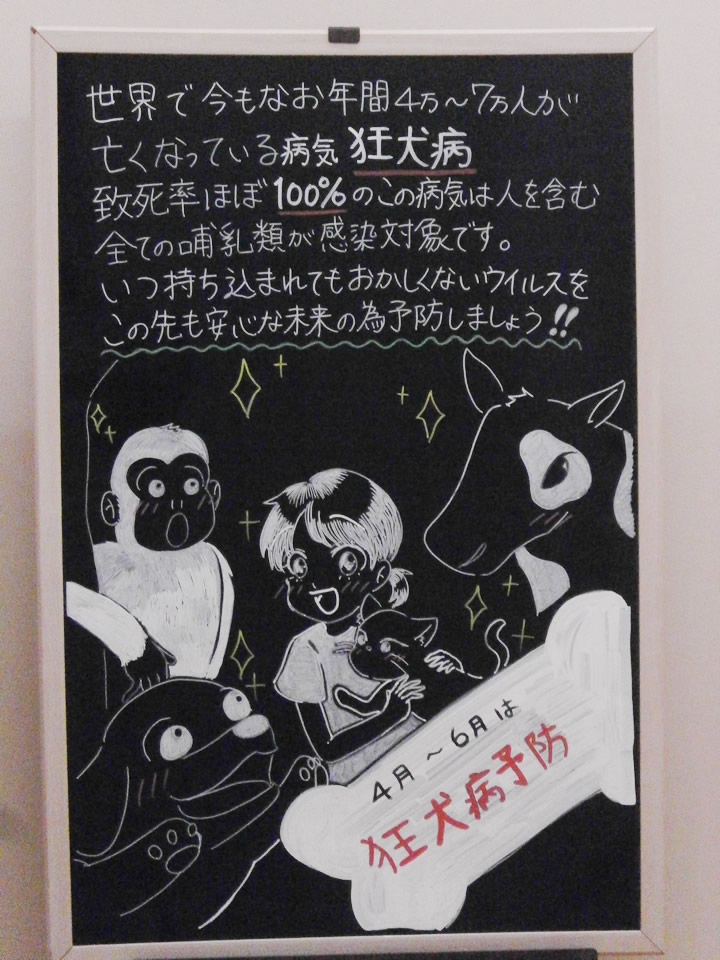 世界で今もなお年間4万～7万人が
亡くなっている病気 狂犬病
致死率ほぼ100%のこの病気は人を含む
全ての哺乳類が感染対象です。
いつ持ち込まれてもおかしくないウイルスを
この先も安心な未来の為予防しましょう!!
4月～6月は
狂犬病予防